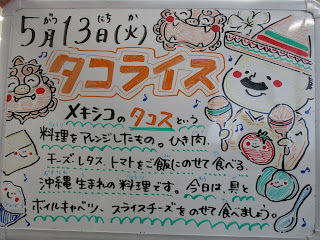 5月13日(火)
がつ にち か
タコライス
メキシコのタコスという
料理をアレンジしたもの。ひき肉、
チーズ、レタス、トマトをご飯にのせて食べる、
沖縄生まれの料理です。今日は、具と
ボイルキャベツ、スライスチーズをのせて食べましょう。